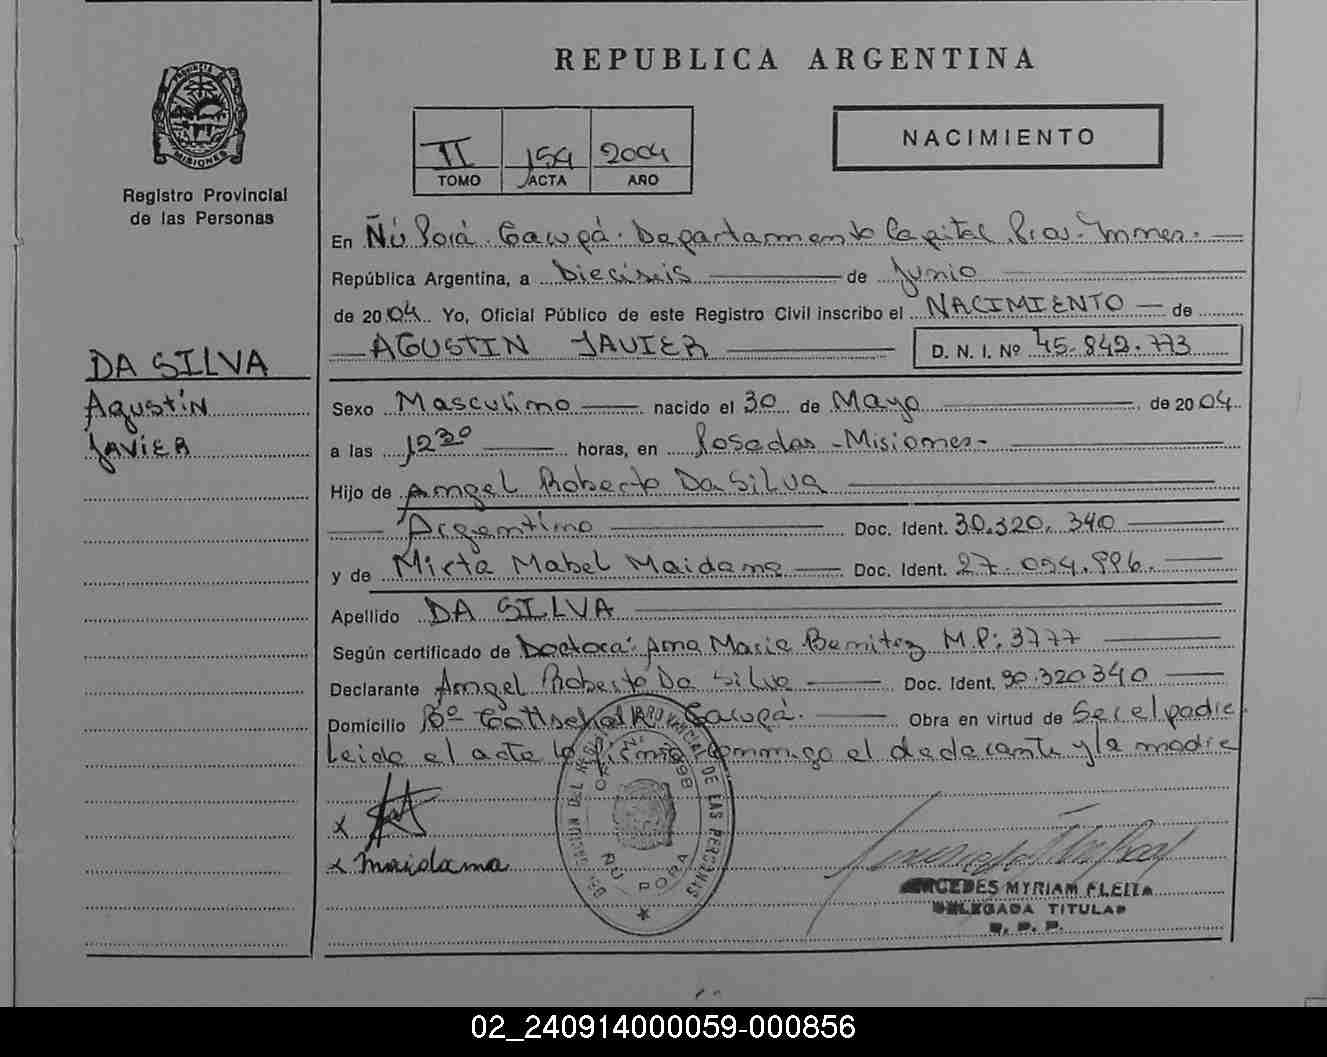 REPUBLICA ARGENTINA
PROVINCIA DE
MISIONES
Registro Provincial
de las Personas
NACIMIENTO
II 154 2004
TOMO ACTA AÑO
En Ñú Porá. Garupá. Departamento Capital Prov.
República Argentina, a Dieciseis de Junio
de 2004 Yo, Oficial Público de este Registro Civil inscribo el NACIMIENTO de
AGUSTIN JAVIER D. N. I. Nº 45.842.773
DA SILVA
Agustín
JAVIER
Sexo Masculino nacido el 30 de Mayo de 2004
a las 12 30 horas, en Posadas - Misiones -
Hijo de Angel Roberto Da Silva
Argentino Doc. Ident. 30.320.340
y de Mirta Mabel Maidana Doc. Ident. 27.094.996.
Apellido DA SILVA
Según certificado de Doctora: Ana Maria Benitez M.P: 3777
Declarante Angel Roberto Da Silva Doc. Ident. 30.320340
Domicilio Bº Garupá. Obra en virtud de Ser el padre
Leida el acta la firma conmigo el declarante y la madre
x
x Maidana
DELEGACION DEL REGISTRO PROVINCIAL DE LAS PERSONAS
ÑU PORA
MERCEDES MYRIAM FLEITA
DELEGADA TITULAR
R. P. P.
02_240914000059-000856